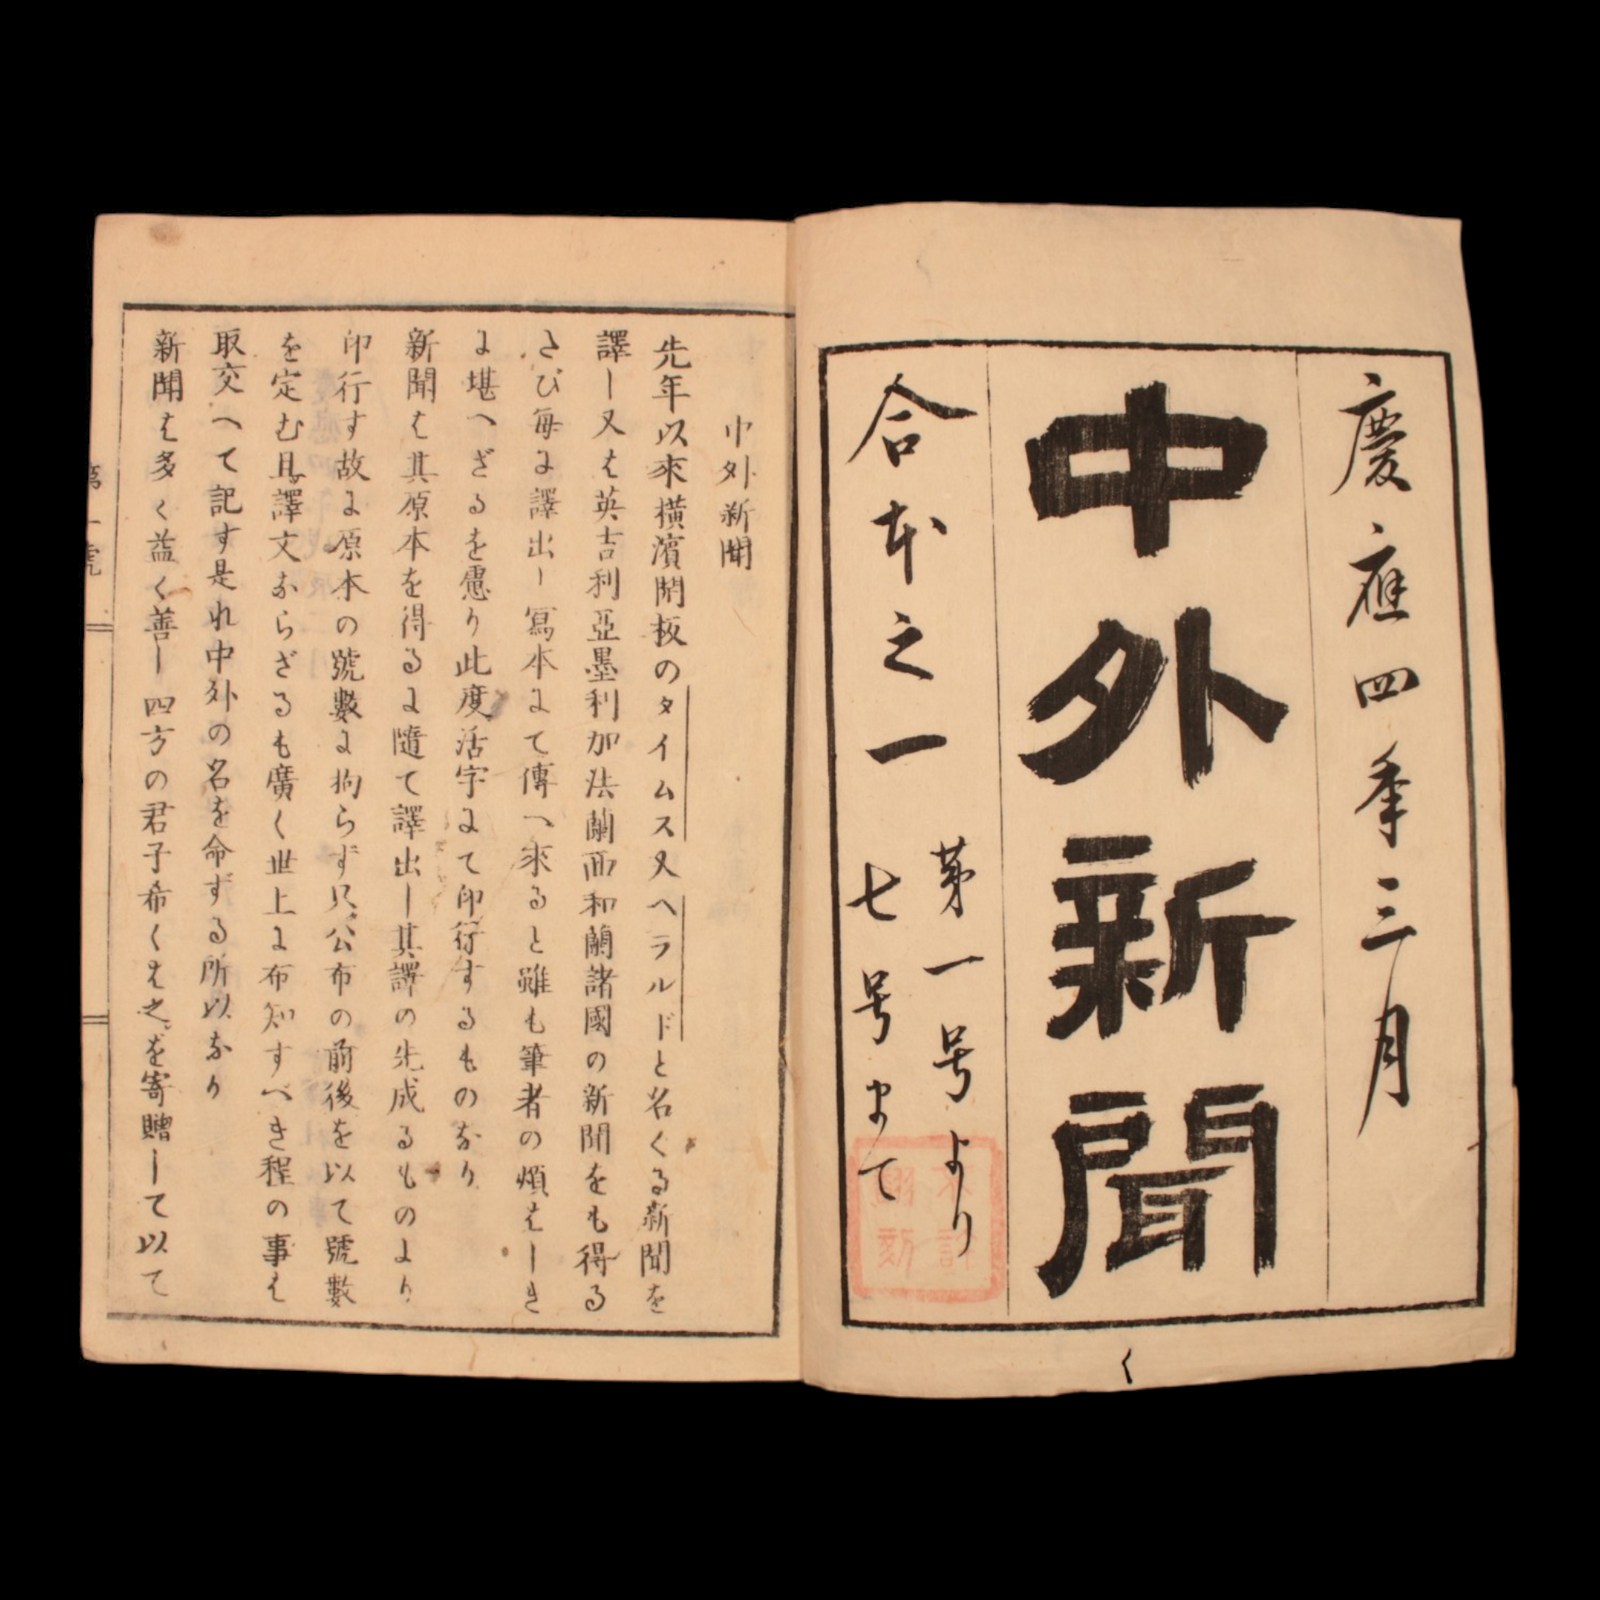 慶應四年三月
中外新聞
合本之一
第一号より
七号まて
不許
翻刻
中外新聞
先年以來横濱開板のタイムス又ヘラルドと名くる新聞を
譯し又は英吉利亞墨利加法蘭西和蘭諸國の新聞をも得る
さび毎に譯出し冩本にて傳へ來ると雖も筆者の煩はしき
に堪へざるを慮り此度活字にて印行するものなり
新聞は其原本を得るに隨て譯出し其譯の先成るものより
印行す故に原本の號數に拘らず只公布の前後を以て號數
を定む且譯文ならざるも廣く世上に布知すべき程の事は
取交へて記す是れ中外の名を命ずる所以なり
新聞は多く益く善し四方の君子希くは之を寄贈して以て
第一號